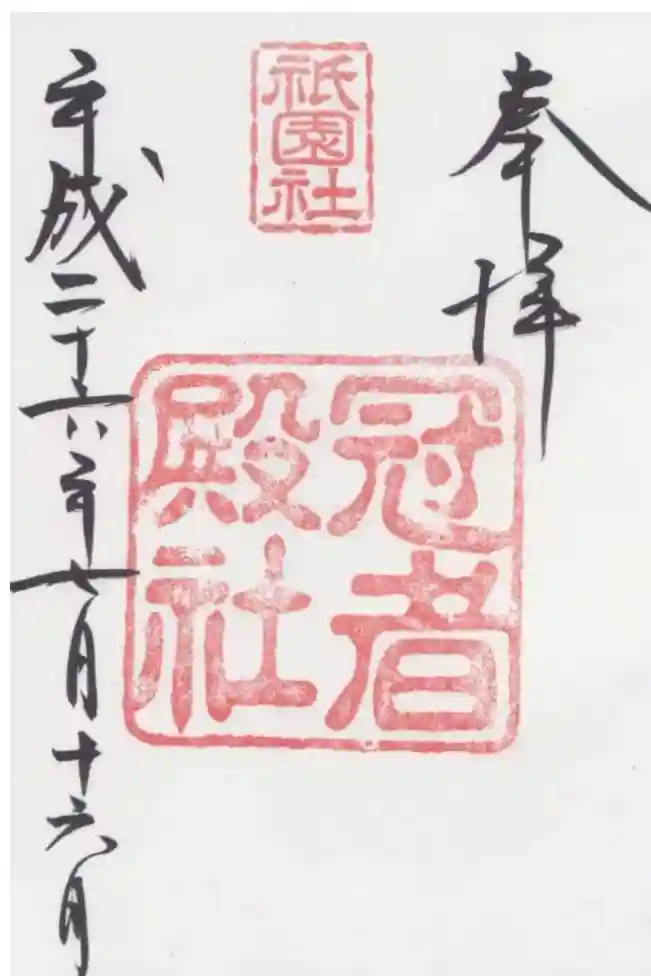 奉拝
祇園社
冠者
殿社
平成二十六年七月十六日